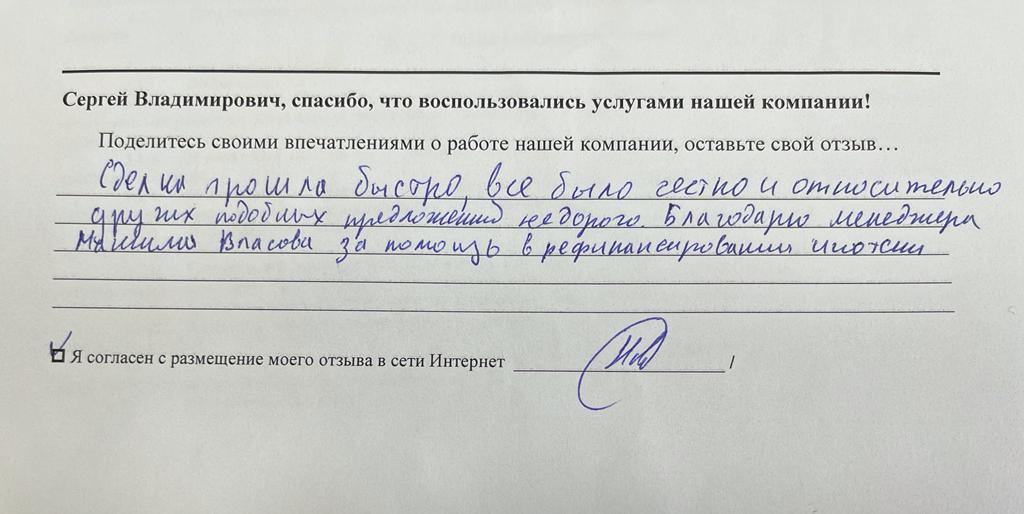 Сергей Владимирович, спасибо, что воспользовались услугами нашей компании!
Поделитесь своими впечатлениями о работе нашей компании, оставьте свой отзыв…
Сделка прошла быстро, все было честно и относительно
других подобных предложений недорого. Благодарю менеджера
Власова за помощь в рефинансировании
Я согласен с размещение моего отзыва в сети Интернет /